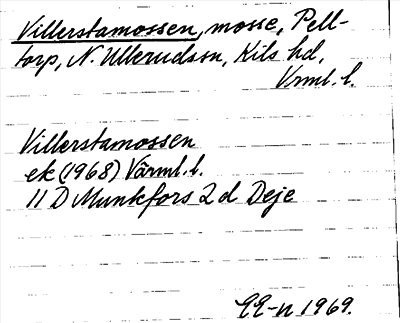 Villerstamossen, mosse, Pell-
torp, N. Ullerudssn, Kils hd,
Vrml. l.
Villerstamossen
ek (1968) Värml. l.
11 D Munkfors 2 d Deje
1969.